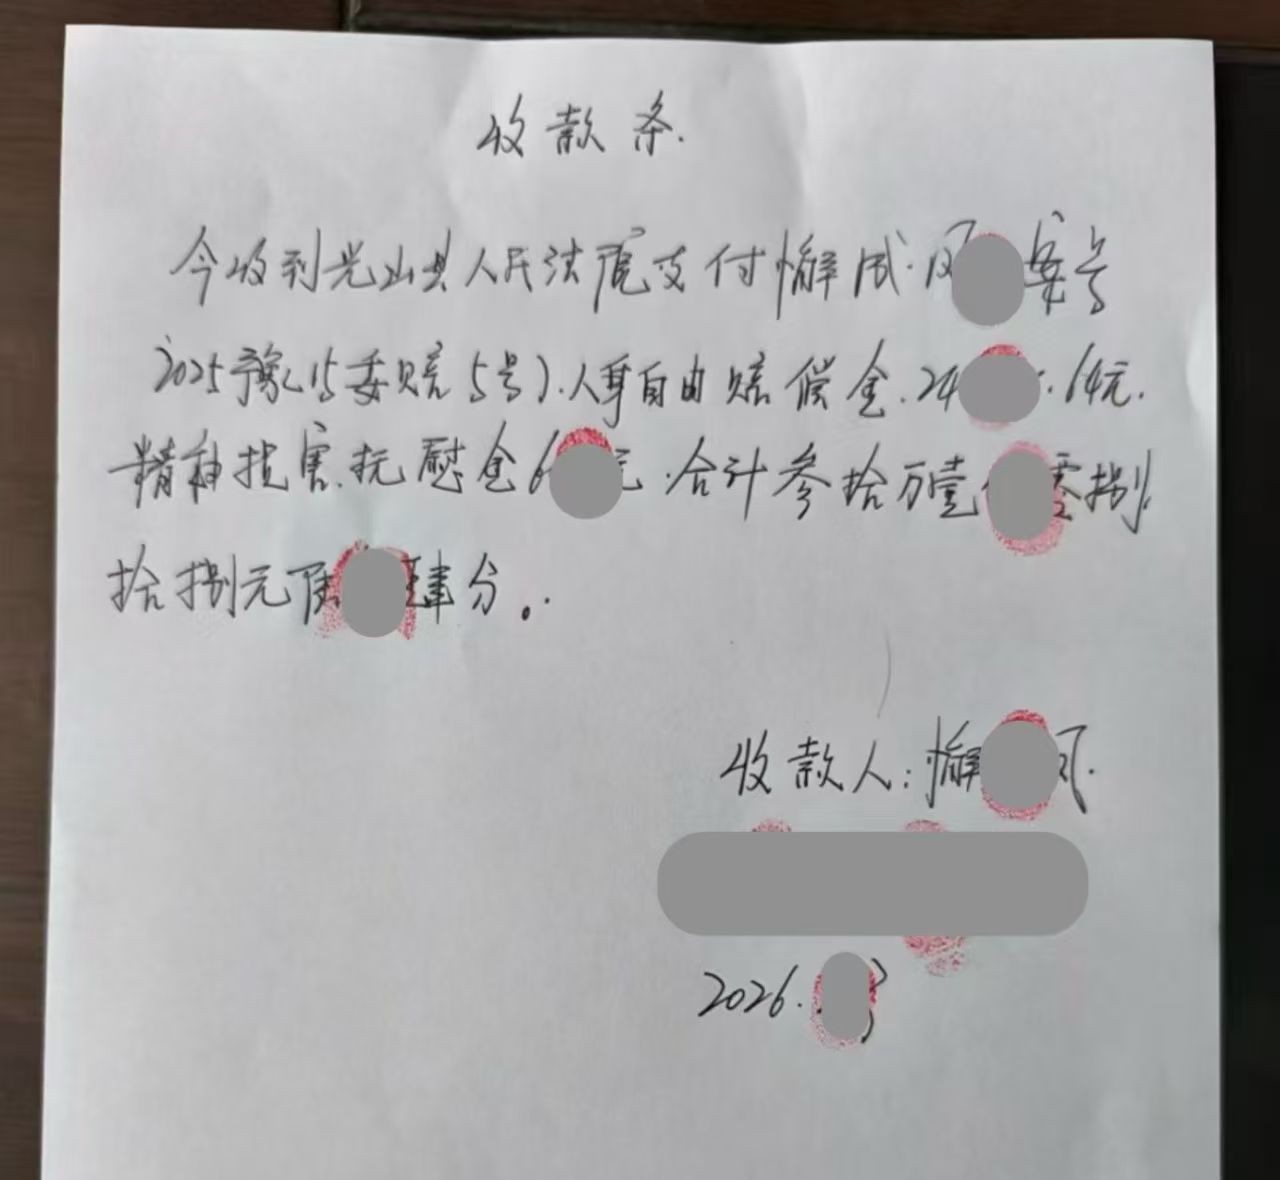 收款条.
今收到光山县人民法院支付懈成.风 案号
2025豫15委赔5号).人身自由赔偿金.24 .64元.
精神损害.抚慰金6 元.合计参拾万壹 零捌
拾捌元陆 肆分.
收款人:懈 风.
2026. 3